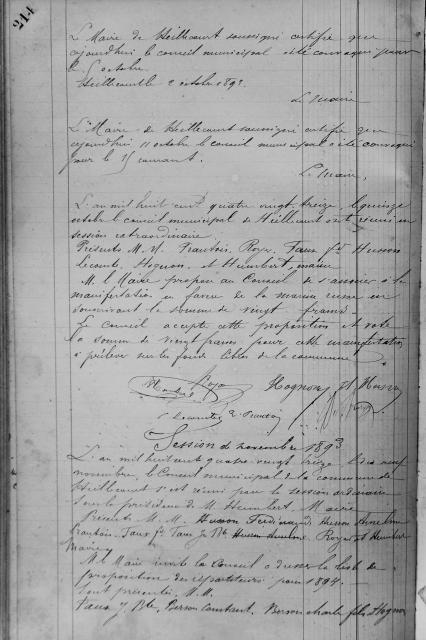 244
Le Maire de Heillecourt soussigné certifie que
aujourdhui le conseil municipal a été convoqué pour
le 5 octobre
Heillecourt le 2 octobre 1893
Le Maire
Le Maire de Heillecourt soussigné certifie que
aujourdhui 11 octobre le conseil municipal a été convoqué
pour le 15 courant.
Le Maire,
L'an mil huit cent quatre vingt treize, le quinze
octobre le conseil municipal de Heillecourt s'est réuni en
session extraordinaire
Présents M. M. Roye, Husson
Lecomte, Hognon, et Humbert, maire
M. le Maire propose au Conseil de s'associer à la
manifestation en faveur de la marine russe en
souscrivant la somme de vingt francs
Le conseil accepte cette proposition et vote
la somme de vingt francs pour cette manifestation
à prélever sur les fonds libres de la commune
Roye Hognon
Session de novembre 1893
L'an mil huit cent quatre vingt treize le dix neuf
novembre, le Conseil municipal de la commune de
Heillecourt s'est réuni pour la session ordinaire
sous la présidence de M. Humbert Maire
Présents M. M. Husson Ferdinand Husson Anselme
Roye et Humbert
Maire
M. le Maire invite le Conseil à dresser la liste de
proposition des répartiteurs pour 1894.
Sont présentés M. M.
J. Bte, Constant, charles fils, Hognon